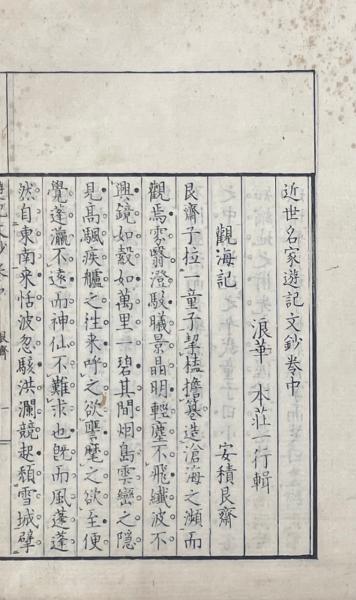 近世名家遊記文鈔卷中
浪華 木莊一行輯
觀海記 安積艮齋
艮齋子拉一童子挈榼擔簦造滄海之瀕而
觀焉雰翳澄駁曦景晶明輕塵不飛纖波不
興鏡如縠如萬里一碧其間烟島雲巒之隱
見高颿疾艫之往來呼之欲譍麾之欲至便
覺蓬瀛不遠而神仙不難求也既而風蓬蓬
然自東南來恬波忽駭洪瀾競起頽雪城擘